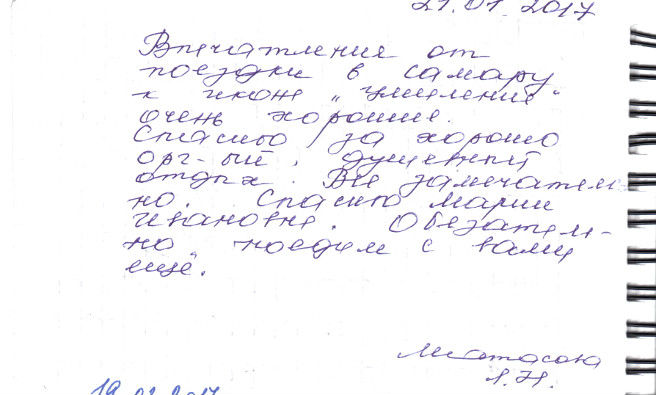 21.01.2017
Впечатления от
поездки в самару
к иконе "умиление"
очень хорошие.
Спасибо за хорошо
орг-ый, душевный
отдых. Все замечатель-
но. Спасибо Марии
Ивановне. Обязатель-
но поедем с вами
ещё.
Л.Н.
19.02.2017